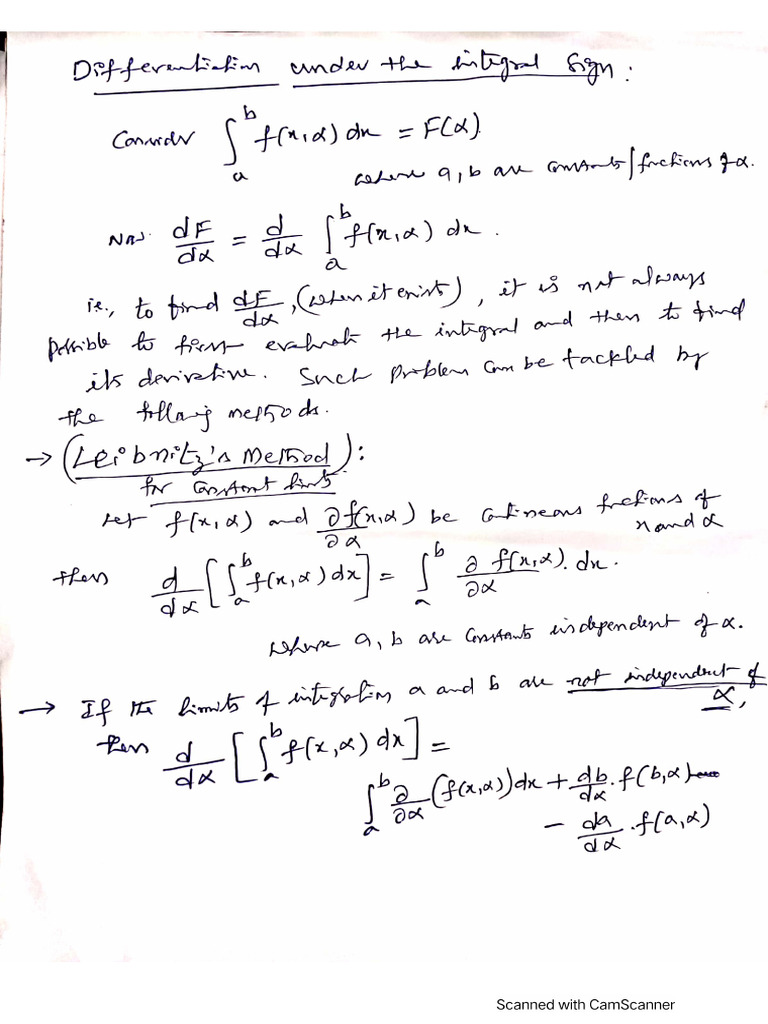 Differentiation under the integral sign:
Consider ∫_a^b f(x,α) dx = F(α).
where a, b are constants/functions of α.
Now dF/dα = d/dα ∫_a^b f(x,α) dx.
ie., to find dF/dα, (when it exist), it is not always
possible to first evaluate the integral and then to find
its derivative. Such problem can be tackled by
the following methods.
→ (Leibnitz's Method
for constant limits):
Let f(x,α) and ∂f(x,α)/∂α be continuous functions of
x and α
then d/dα [∫_a^b f(x,α) dx] = ∫_a^b ∂/∂α f(x,α). dx.
where a, b are constants independent of α.
→ If the limits of integration a and b are not independent of
α,
then d/dα [∫_a^b f(x,α) dx] =
∫_a^b ∂/∂α (f(x,α)) dx + db/dα . f(b,α)
- da/dα . f(a,α)
Scanned with CamScanner